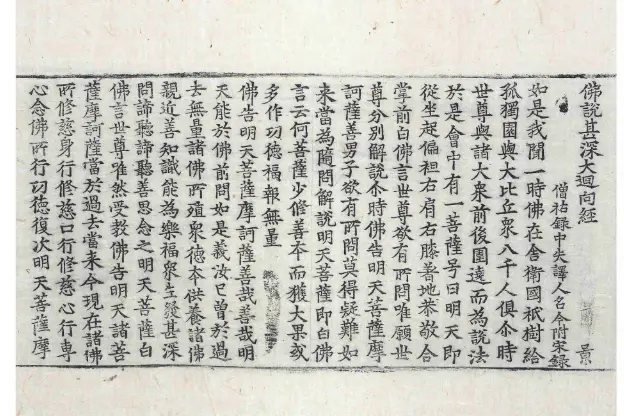 佛說甚深大迴向經 景
僧祐錄中失譯人名今附宋錄
如是我聞一時佛在舍衛國祇樹給
孤獨園與大比丘衆八千人俱尒時
世尊與諸大衆前後圍遶而為說法
於是會中有一菩薩号曰明天即
從坐起偏袒右肩右膝著地恭敬合
掌前白佛言世尊欲有所問唯願世
尊分別解說尒時佛告明天菩薩摩
訶薩善男子欲有所問莫得疑難如
來當為隨問解說明天菩薩即白佛
言云何菩薩少修善本而獲大果或
多作功德福報無量
佛告明天菩薩摩訶薩善哉善哉明
天能於佛前問如是義汝已曾於過
去無量諸佛所殖衆德本供養諸佛
親近善知識能為樂福衆生發甚深
問諦聽諦聽善思念之明天菩薩白
佛言世尊唯然受教佛告明天諸菩
薩摩訶薩當於過去當來今現在諸佛
所修慈身行修慈口行修慈心行専
心念佛所行功德復次明天菩薩摩